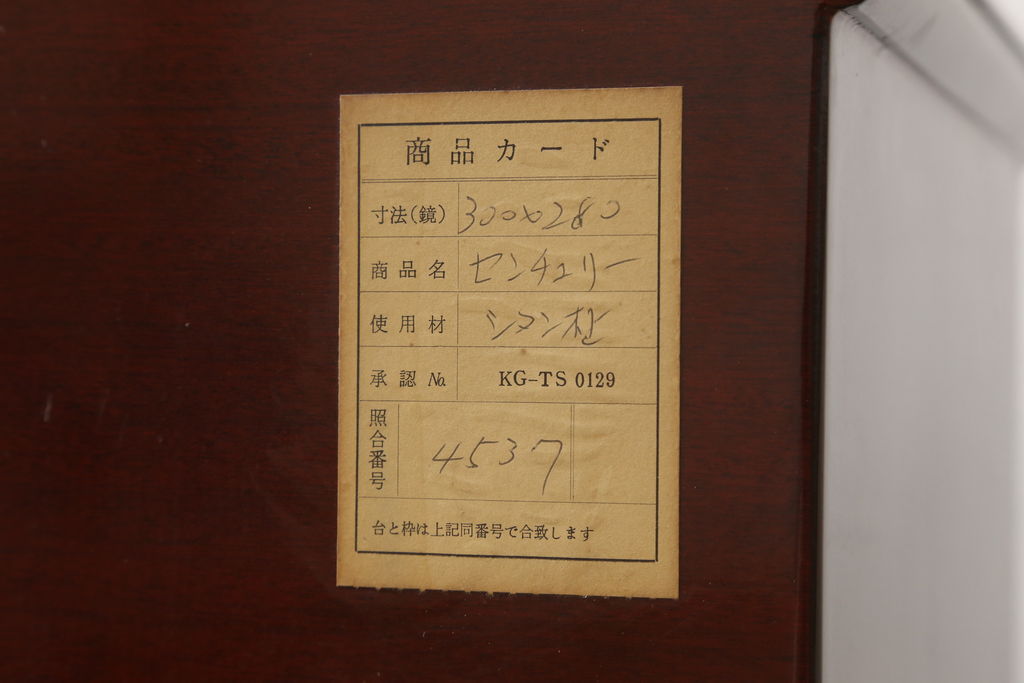 商品カード
寸法(鏡) 300×280
商品名 センチュリー
使用材 シタン材
承認No. KG-TS 0129
照合番号 4537
台と枠は上記同番号で合致します